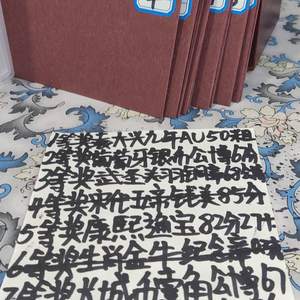 1等奖泰大兴九年AU50粗
2等奖葡萄牙银币公博6分
3等奖武圣关羽
4等奖宋代五帝钱美85分
5等奖康熙通宝82分27
6等奖生肖金牛纪念章
等奖大城
角公博67